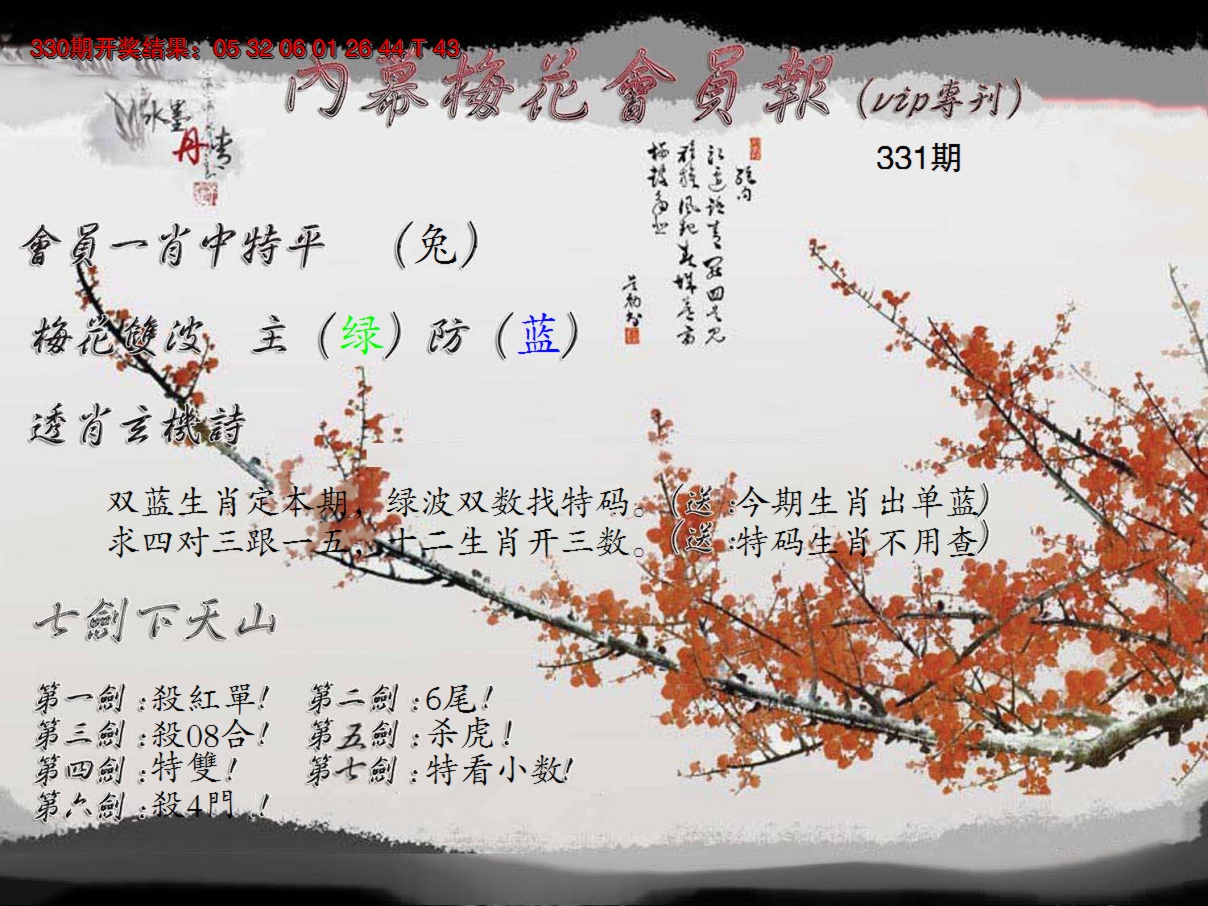 330期开奖结果：05 32 06 01 26 44 T 43
内幕梅花會員報(vip專刊)
水墨
丹情
331期
會員一肖中特平 (兔)
梅花雙波 主(绿)防(蓝)
透肖玄機詩
双蓝生肖定本期，绿波双数找特码。(送:今期生肖出单蓝)
求四对三跟一五，十二生肖开三数。(送:特码生肖不用查)
七劍下天山
第一劍:殺紅單! 第二劍:6尾!
第三劍:殺08合! 第五劍:杀虎!
第四劍:特雙! 第七劍:特看小数!
第六劍:殺4門 !